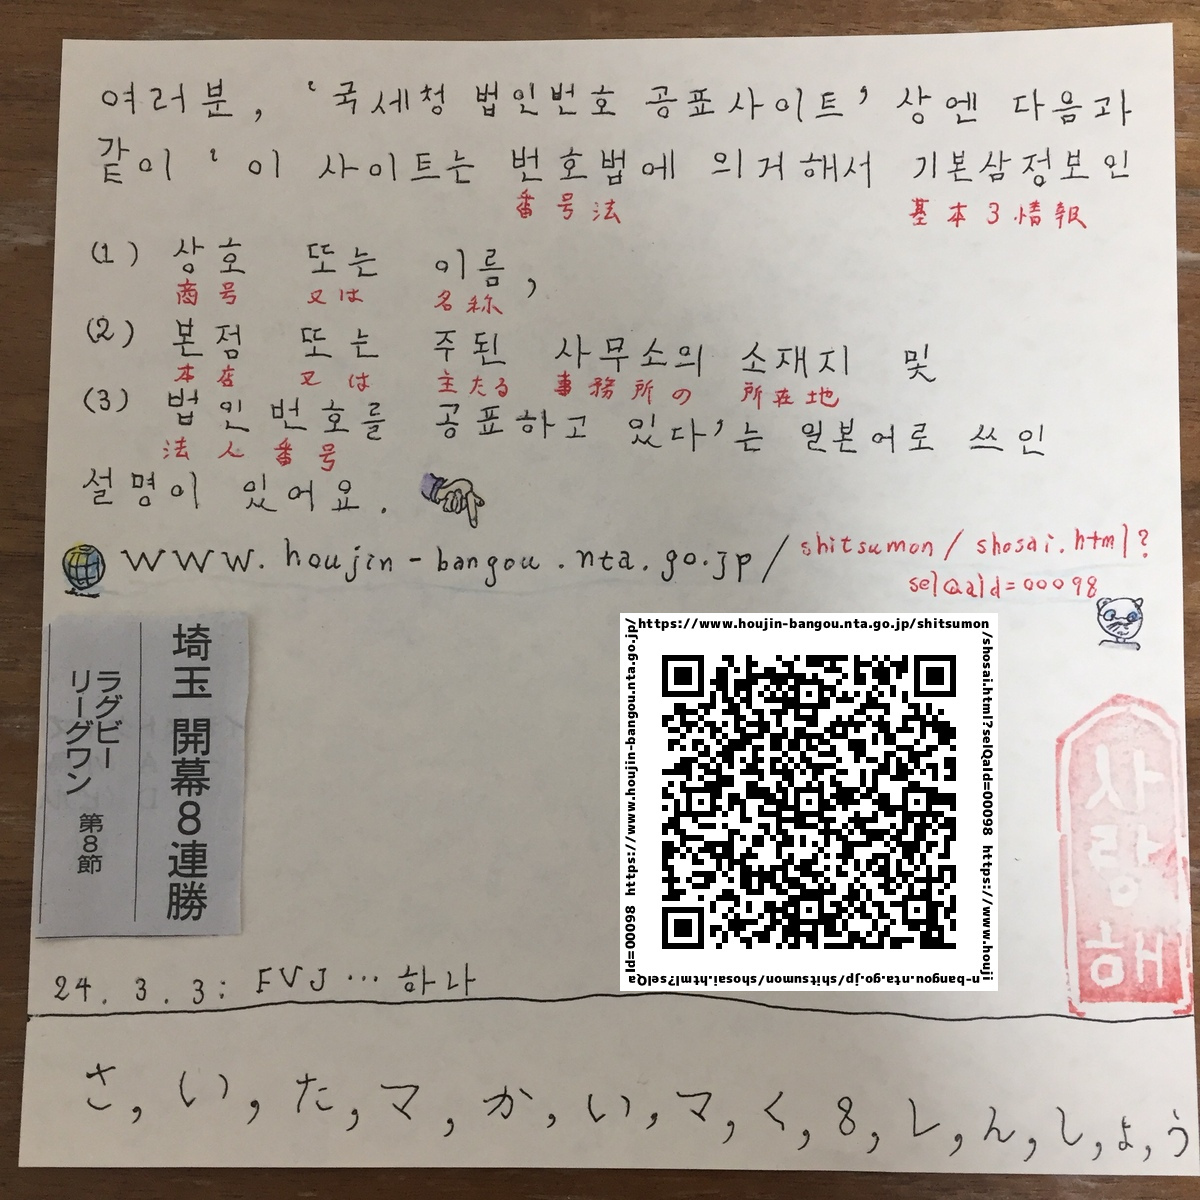 여러분, '국세청 법인번호 공표사이트' 상엔 다음과
같이 '이 사이트는 번호법에 의거해서 기본삼정보인
番号法 基本3情報
(1) 상호 또는 이름,
商号 又は 名称
(2) 본점 또는 주된 사무소의 소재지 및
本店 又は 主たる 事務所の 所在地
(3) 법인번호를 공표하고 있다'는 일본어로 쓰인
法人番号
설명이 있어요.
www.houjin-bangou.nta.go.jp/shitsumon/shosai.html?
selQaId=00098
埼玉 開幕8連勝
ラグビー
リーグワン 第8節
https://www.houjin-bangou.nta.go.jp/shitsumon
/shosai.html?selQaId=00098 https://www.houji
n-bangou.nta.go.jp/shitsumon/shosai.html?selQa
Id=00098 https://www.houjin-bangou.nta.go.jp/
사랑해
24.3.3: FVJ…하나
さ,い,た,マ,か,い,マ,く,8,レ,ん,し,ょ,う